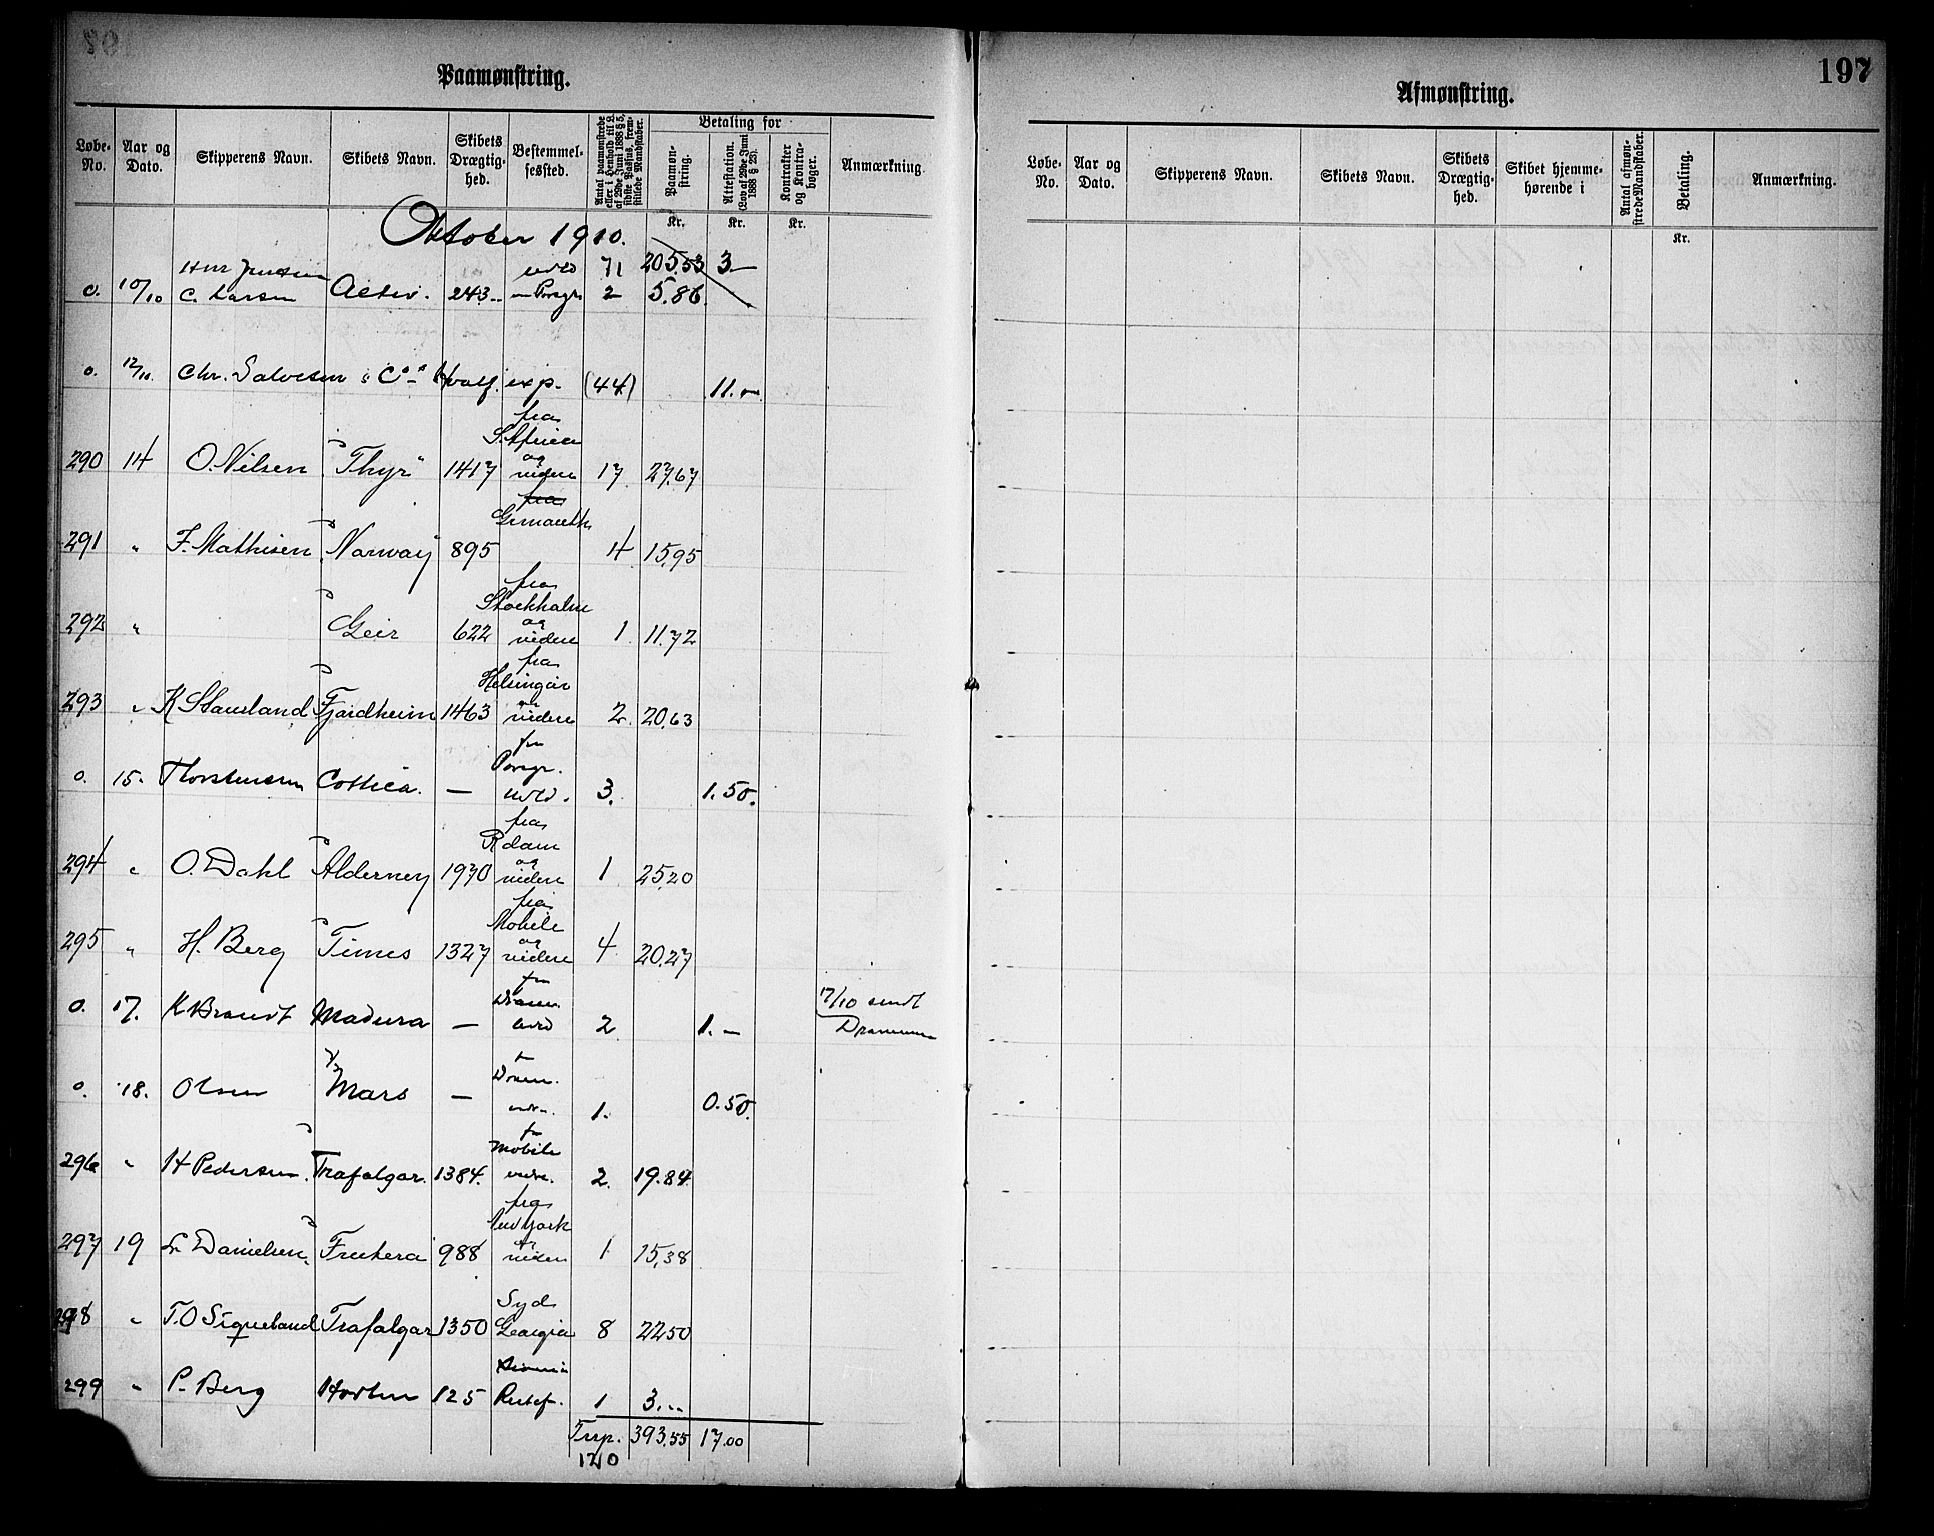 197
Paamønstring.
Løbe-No. Aar og Dato. Skipperens Navn. Skibets Navn. Skibets Drægtig-hed. Bestemmel-sessted. Antal paamønstrede eller i Henhold til L. af 29de Juni 1888 § 5, sidste Passus, frem-stillede Mandskaber. Betaling for Paamøn-string. Attestation. (Lov af 29de Juni 1888 § 23). Kontrakter og Kontra-bøger. Anmærkning.
Kr. Kr. Kr.
Oktober 1910.
71 205.53 3.—
o. 10/10 C. Larsen Activ. 243 Porsgr. 2 5.86
o. 12/10. Chr. Salvesen & Co. Hvalf. exp. (44) 11.—
fra
S. Africa
og
290 14 O. Nilsen "Thyr" 1417 videre 17 27.67
fra
291 " F. Mathisen Norway 895 4 15,95
fra
Stockholm
og
292 " Geir 622 videre 1 11.72
fra
Helsingør
og
293 " K Stausland Fjordheim 1463 videre 2 20,63
fra
Porsgr.
o. 15. Thorstensen Cottica. — udld. 3. 1.50.
fra
Rdam
og
294 " O. Dahl Alderney 1930 videre 1 25,20
fra
Mobile
og
295 " H. Berg Times 1327 videre 4 20.27
fra
Dramm.
o. 17. K Brandt Madura — udld 2 1.— 17/10 sendt
Drammen
Dramm.
o. 18. Olsen Mars — 1. 0.50.
fr
Mobile
296 " H Pedersen. Trafalgar. 1384. 2. 19.84
fra
New York
og
297 19 L. Danielsen. Frutera 988 viden 1 15,38
Syd
298 " T.O Siqueland Trafalgar 1350 Georgia 8 22 50
299 " P. Berg Horten 125 1 3...
Trsp. 393.55 17.00
120
197
Afmønstring.
Løbe-No. Aar og Dato. Skipperens Navn. Skibets Navn. Skibets Drægtig-hed. Skibet hjemme-hørende i Antal afmøn-strede Mandskaber. Betaling. Anmærkning.
Kr.